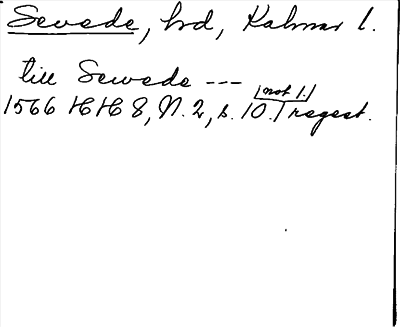 Sevede, hd, Kalmar l.
till Sewede ---
(not 1.)
1566 HH 8, N. 2, s. 10. / regest.